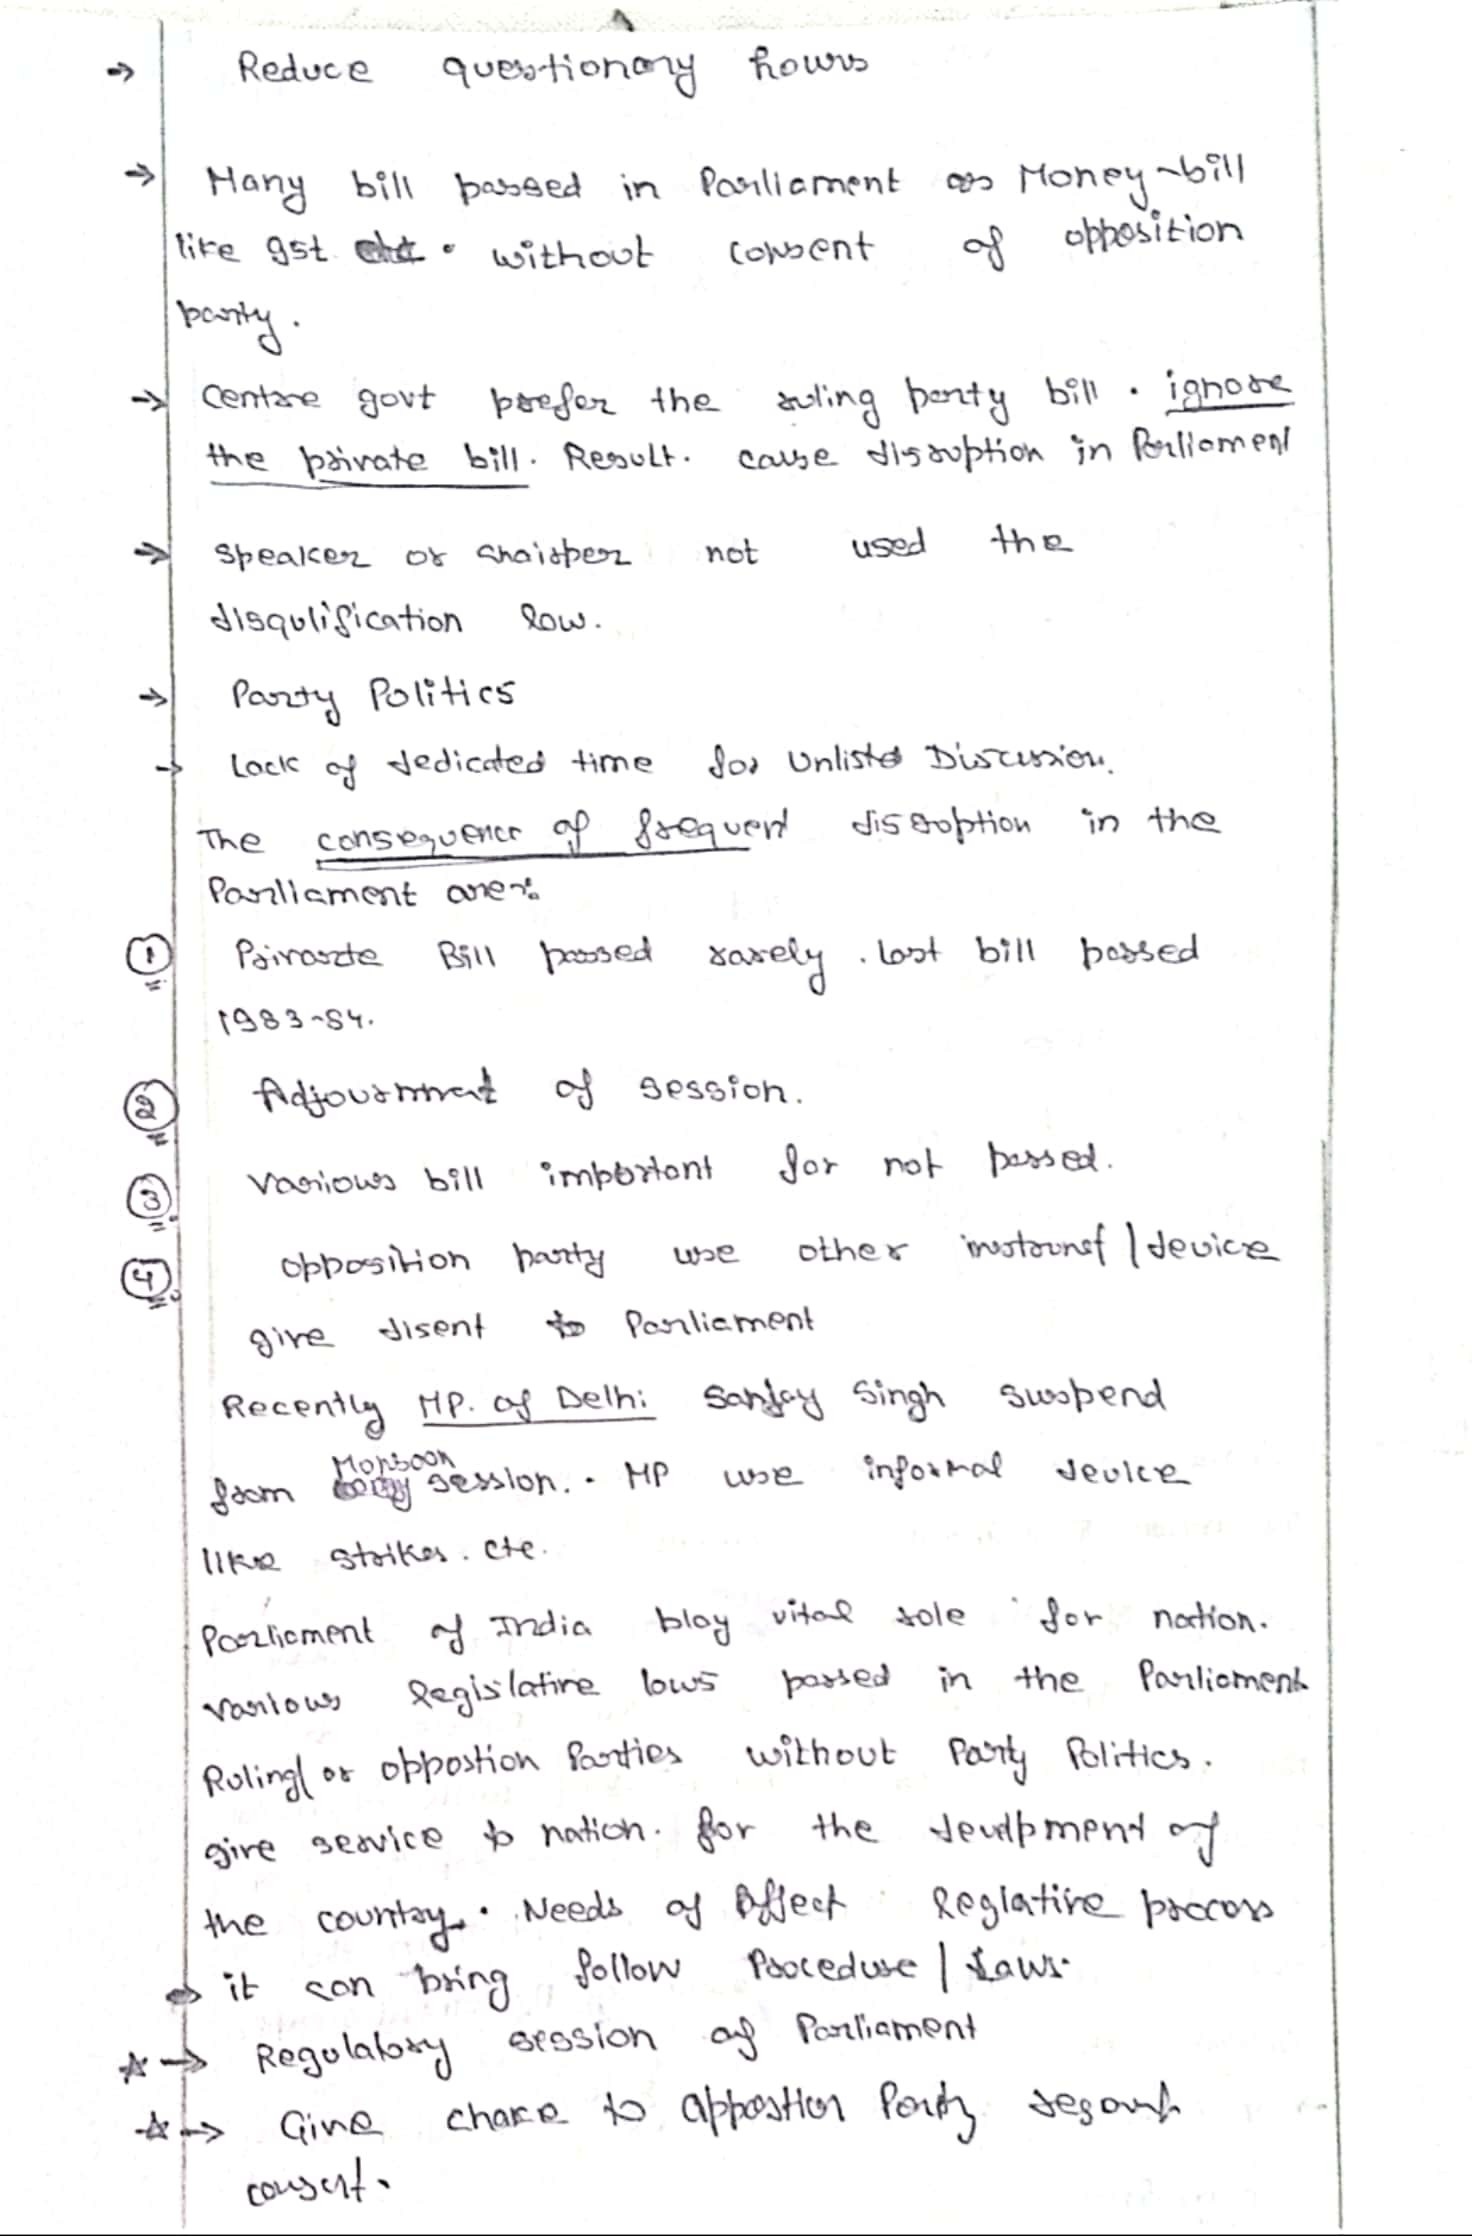 → Reduce questionary hours
→ Many bill passed in Parliament as Money-bill
like gst . without consent of opposition
party.
→ Centre govt prefer the ruling party bill . ignore
the private bill. Result. cause disruption in Parliament
→ Speaker or not used the
disqulification law.
→ Party Politics
→ Lack of dedicated time for Unlisted Discussion.
The consequence of frequent disruption in the
Parliament are:
① Private Bill passed rarely . last bill passed
1983-84.
② Adjournment of session.
③ Various bill important for not passed.
④ opposition party use other / device
give disent to Parliament
Recently MP. of Delhi Sanjay Singh suspend
from Monsoon session. . MP use informal device
like strikes. etc.
Parliament of India play vital role for nation.
various legislative laws passed in the Parliament
Ruling or oppostion Parties without Party Politics.
give service to nation. for the of
the country. . Needs of process
→ it can bring follow Procedure / Laws.
☆ → Regulatory session of Parliament
☆ → Give to oppostion Party
consent.